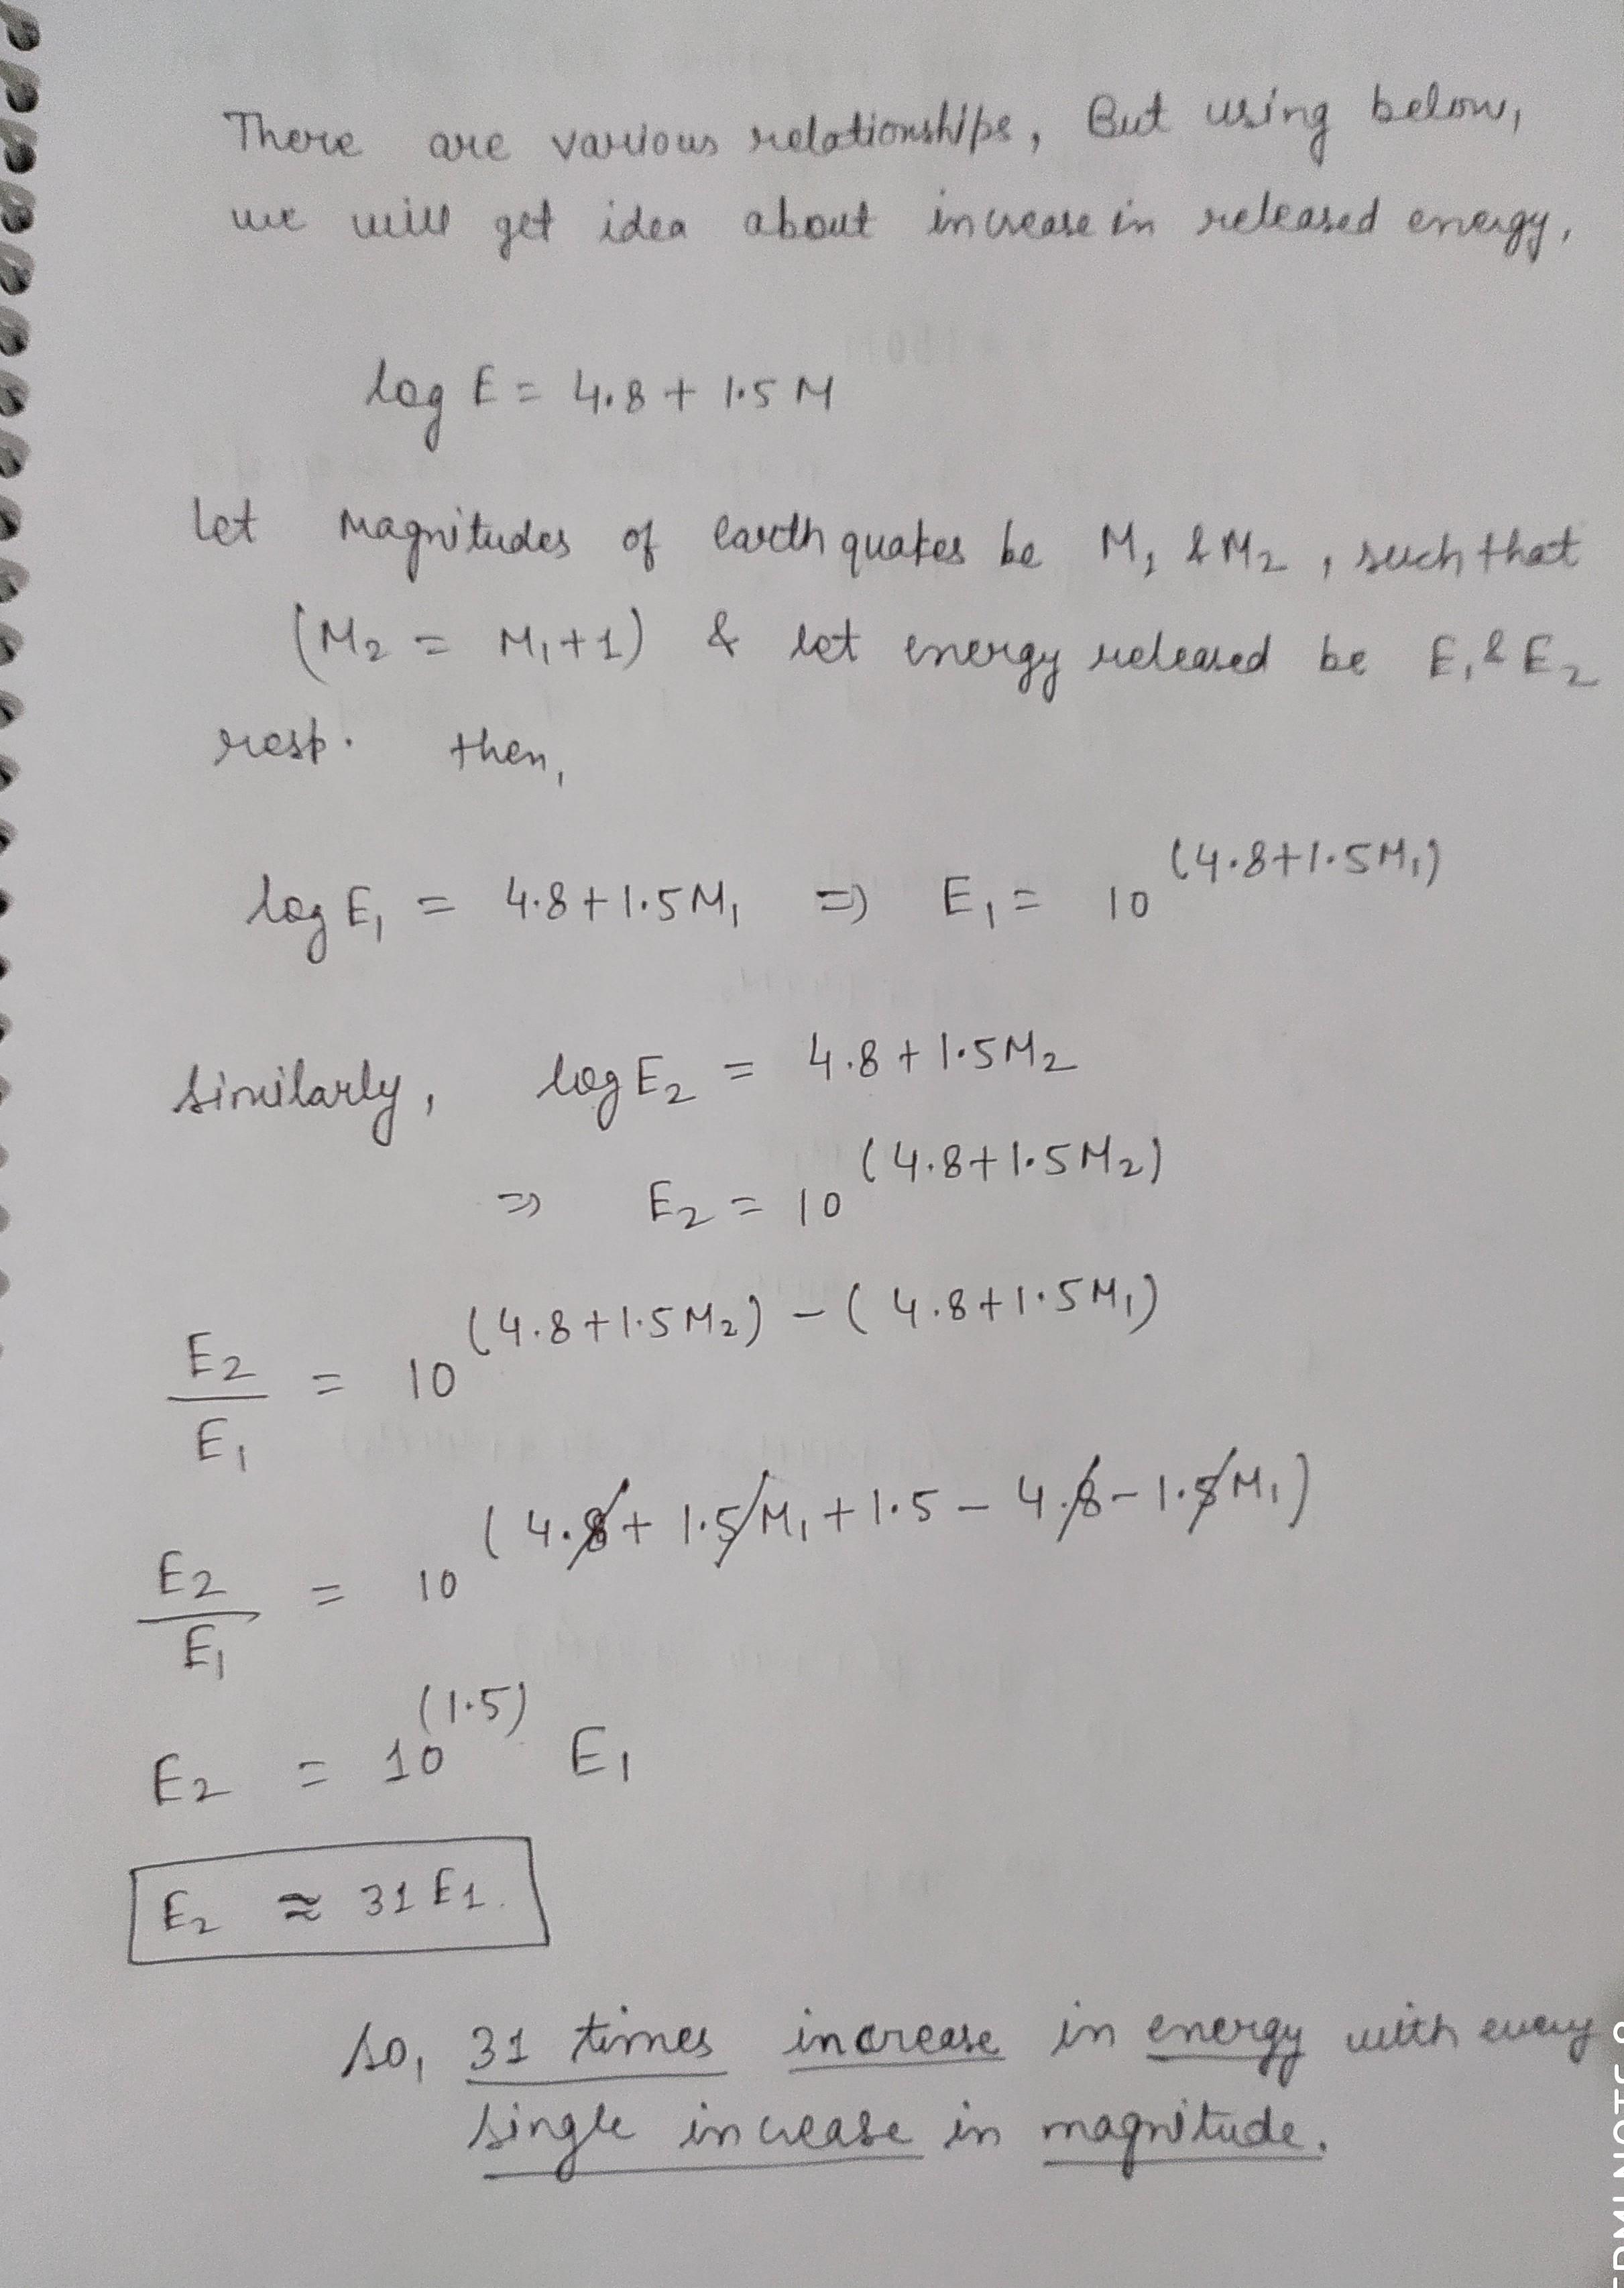 There are various relationships, But using below,
we will get idea about increase in released energy,
log E = 4.8 + 1.5 M
Let Magnitudes of earth quakes be M₁ & M₂, such that
(M₂ = M₁+1) & let energy released be E₁ & E₂
resp. then,
log E₁ = 4.8 + 1.5M₁ ⇒ E₁ = 10^(4.8+1.5M₁)
Similarly, log E₂ = 4.8 + 1.5M₂
⇒ E₂ = 10^(4.8+1.5M₂)
E₂/E₁ = 10^(4.8+1.5M₂) - (4.8+1.5M₁)
E₂/E₁ = 10^(4.8+1.5M₁+1.5-4.8-1.5M₁)
E₂ = 10^(1.5) E₁
E₂ ≈ 31 E1.
So, 31 times increase in energy with every
single increase in magnitude.